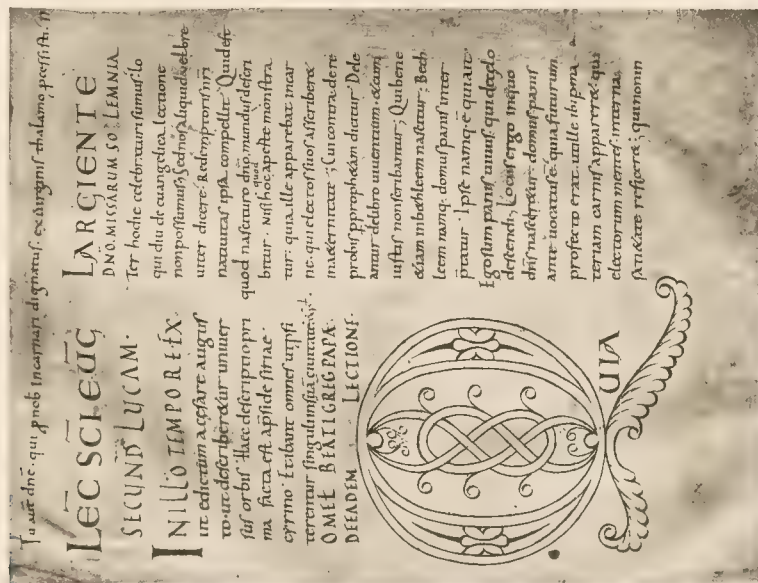 Tu aut dnē. qui ꝑ nob Incarnari dignatus. ex uirginis thalamo pcessisti.
LEC̄ SCĪ EUḠ
SECUND LUCAM.
IN ILLO TEMPORE. EX
iit edictum a cesare augus
to. ut describer&ur uniuer
sus orbis. Haec descriptio pri
ma facta est a p̄side siriae
cyrino. Et ibant omnes ut psi
terentur singuli in suā ciuitatē.
OMEL BEATI GREG PAPAE
DE EADEM LECTIONE
QUIA
LARGIENTE
DNŌ. MISSARUM SOLLEMNIA
Ter hodie celebraturi sumus; lo
qui diu de euangelica lectione
non possumus; Sed nos aliquid uel bre
uiter dicere. Redemptoris nr̄i
natiuitas ipsa compellit. Quid est
quod nasciturο dnō. mundus descri
bitur. Nisi hoc quod aperte monstra
tur. quia ille apparebat in car
ne. qui electos suos asscriber&
in aeternitate; Cui contra de re
probis ꝑ proph&am dicitur. Dele
antur de libro uiuentium. & cum
iustis non scribantur; Qui bene
&iam in bethleem nascitur; Beth
leem namq. domus panis inter
p̄tatur. Ipse namq. ē qui ait.
Ego sum panis uiuus. qui de celo
descendi; Locus ergo in quo
dn̄s nascitur. domus panis
ante uocatus ē. quia futurum
profecto erat. ut ille ibi p ma
teriam carnis apparer&. qui
electorum mentes interna
sati&ate reficer&; qui non in